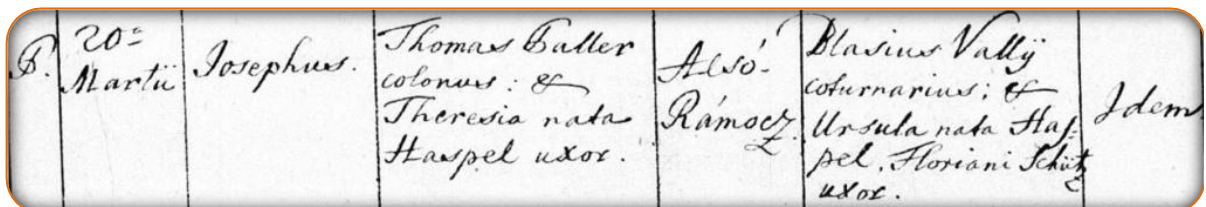 P.
20ª
Martii
Josephus.
Thomas Faller
colonus: &
Theresia nata
Haspel uxor.
Alsó-
Rámocz.
Blasius Vallÿ
coturnarius: &
Ursula nata Has-
pel, Floriani Schütz
uxor.
Idem